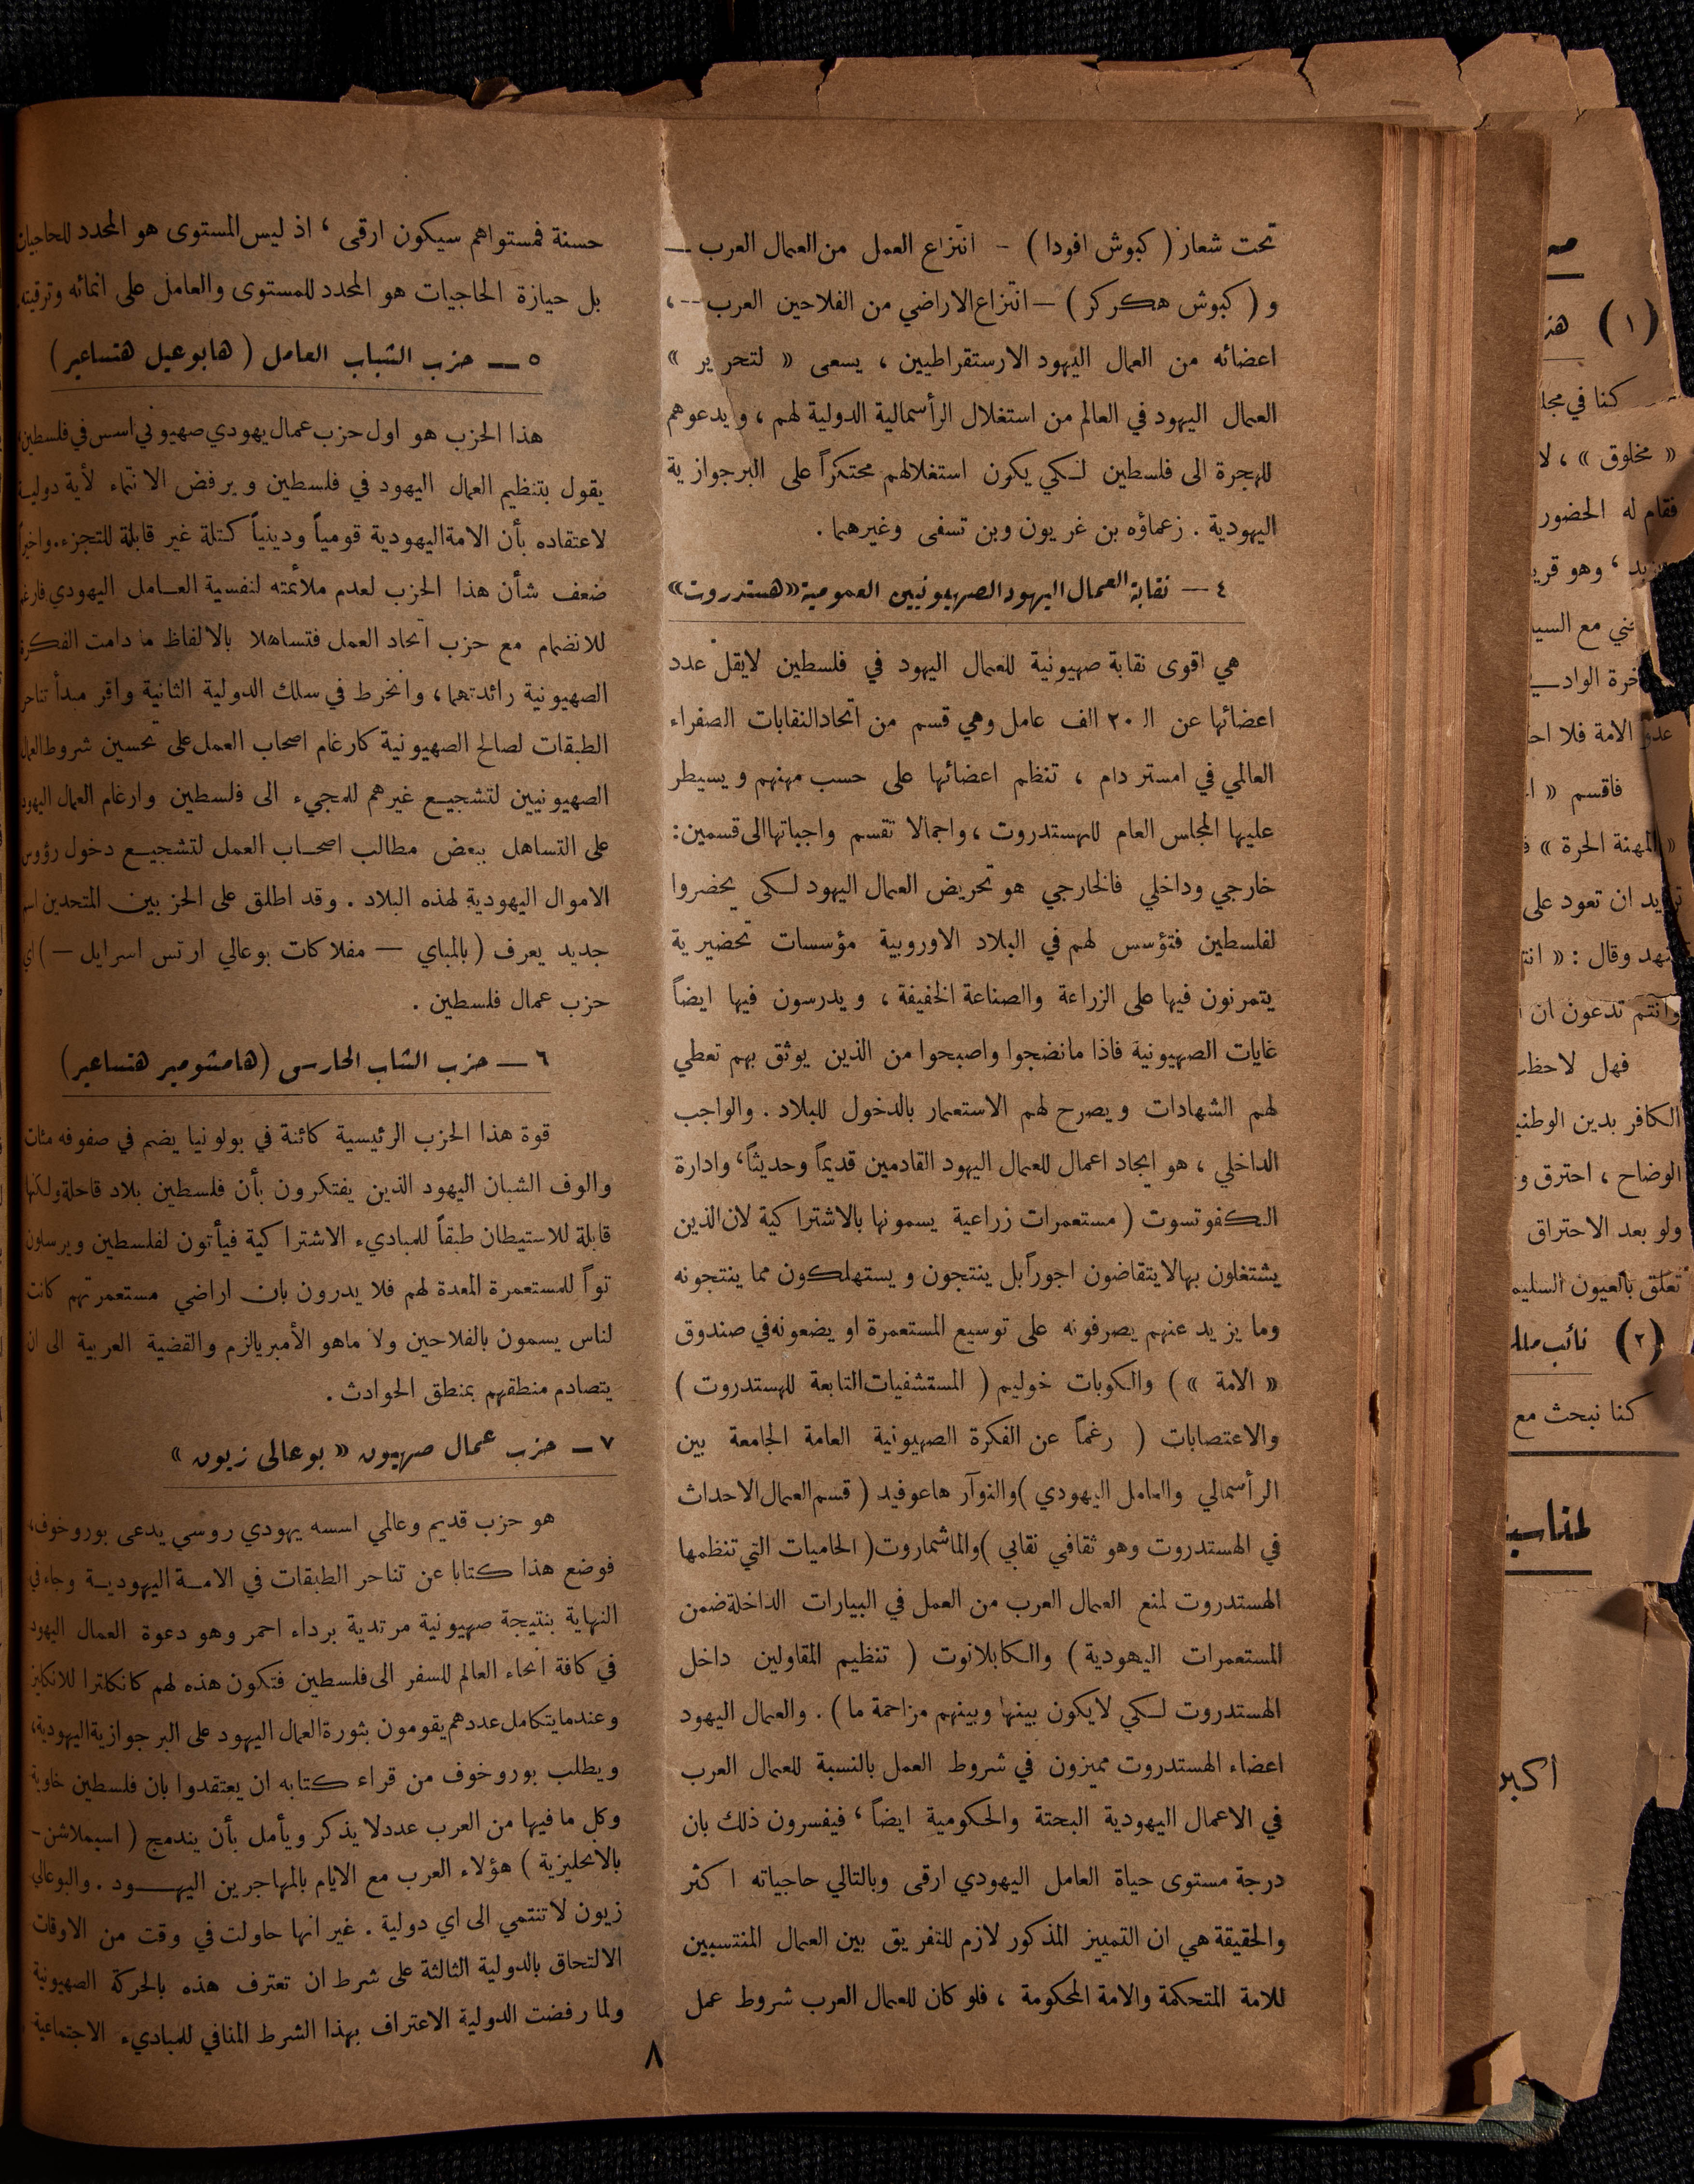 تحت شعار ( كبوش افودا ) - انتزاع العمل من العمال العرب —
و ( كبوش هكركر ) — انتزاع الاراضي من الفلاحين العرب --،
اعضائه من العمال اليهود الارستقراطيين ، يسعى « لتحرير »
العمال اليهود في العالم من استغلال الرأسمالية الدولية لهم ، ويدعوهم
للهجرة الى فلسطين لكي يكون استغلالهم محتكراً على البرجوازية
اليهودية . زعماؤه بن غريون وبن تسفى وغيرهما .
٤ — نقابة العمال اليهود الصهيونيين العمومية «هستدروت»
هي اقوى نقابة صهيونية للعمال اليهود في فلسطين لايقل عدد
اعضائها عن الـ ٢٠ الف عامل وهي قسم من اتحاد النقابات الصفراء
العالمي في امستردام ، تنظم اعضائها على حسب مهنهم ويسيطر
عليها المجلس العام للهستدروت ، واجمالا تقسم واجباتها الى قسمين:
خارجي وداخلي فالخارجي هو تحريض العمال اليهود لكي يحضروا
لفلسطين فتؤسس لهم في البلاد الاوروبية مؤسسات تحضيرية
يتمرنون فيها على الزراعة والصناعة الخفيفة ، ويدرسون فيها ايضاً
غايات الصهيونية فاذا مانضجوا واصبحوا من الذين يوثق بهم تعطي
لهم الشهادات ويصرح لهم الاستعمار بالدخول للبلاد . والواجب
الداخلي ، هو ايجاد اعمال للعمال اليهود القادمين قديماً وحديثاً ، وادارة
الكفوتسوت ( مستعمرات زراعية يسمونها بالاشتراكية لان الذين
يشتغلون بها لايتقاضون اجوراً بل ينتجون ويستهلكون مما ينتجونه
وما يزيد عنهم يصرفونه على توسيع المستعمرة او يضعونه في صندوق
« الامة » ) والكوبات خوليم ( المستشفيات التابعة للهستدروت )
والاعتصابات ( رغماً عن الفكرة الصهيونية العامة الجامعة بين
الرأسمالي والعامل اليهودي ) والنوآر هاعوفيد ( قسم العمال الاحداث
في الهستدروت وهو ثقافي نقابي ) والماشماروت ( الحاميات التي تنظمها
الهستدروت لمنع العمال العرب من العمل في البيارات الداخلة ضمن
المستعمرات اليهودية ) والكابلانوت ( تنظيم المقاولين داخل
الهستدروت لكي لايكون بينها وبينهم مزاحمة ما ) . والعمال اليهود
اعضاء الهستدروت مميزون في شروط العمل بالنسبة للعمال العرب
في الاعمال اليهودية البحتة والحكومية ايضاً ، فيفسرون ذلك بان
درجة مستوى حياة العامل اليهودي ارقى وبالتالي حاجياته اكثر
والحقيقة هي ان التمييز المذكور لازم للتفريق بين العمال المنتسبين
للامة المتحكمة والامة المحكومة ، فلو كان للعمال العرب شروط عمل
حسنة فمستواهم سيكون ارقى ، اذ ليس المستوى هو المحدد للحاجيات
بل حيازة الحاجيات هو المحدد للمستوى والعامل على انمائه وترقيته
٥ — حزب الشباب العامل ( هابوعيل هتساعير )
هذا الحزب هو اول حزب عمال يهودي صهيوني اسس في فلسطين
يقول بتنظيم العمال اليهود في فلسطين ويرفض الانتماء لأية دولية
لاعتقاده بأن الامة اليهودية قومياً ودينياً كتلة غير قابلة للتجزء. واخيراً
ضعف شأن هذا الحزب لعدم ملائمته لنفسية العامل اليهودي فارغم
للانضمام مع حزب اتحاد العمل فتساهلا بالالفاظ ما دامت الفكرة
الصهيونية رائدتهما ، وانخرط في سلك الدولية الثانية واقر مبدأ تناحر
الطبقات لصالح الصهيونية كارغام اصحاب العمل على تحسين شروط العمال
الصهيونيين لتشجيع غيرهم للمجيء الى فلسطين وارغام العمال اليهود
على التساهل ببعض مطالب اصحاب العمل لتشجيع دخول رؤوس
الاموال اليهودية لهذه البلاد . وقد اطلق على الحزبين المتحدين اسم
جديد يعرف ( بالمباي — مفلاكات بوعالي ارتس اسرايل — ) اي
حزب عمال فلسطين .
٦ — حزب الشاب الحارس (هامشومير هتساعير)
قوة هذا الحزب الرئيسية كائنة في بولونيا يضم في صفوفه مئات
والوف الشبان اليهود الذين يفتكرون بأن فلسطين بلاد قاحلة ولكنها
قابلة للاستيطان طبقاً للمباديء الاشتراكية فيأتون لفلسطين ويرسلون
تواً للمستعمرة المعدة لهم فلا يدرون بان اراضي مستعمرتهم كانت
لناس يسمون بالفلاحين ولا ماهو الأمبريالزم والقضية العربية الى ان
يتصادم منطقهم بمنطق الحوادث .
٧ — حزب عمال صهيون « بوعالي زيون »
هو حزب قديم وعالمي اسسه يهودي روسي يدعى بوروخوف،
فوضع هذا كتابا عن تناحر الطبقات في الامة اليهودية وجاء في
النهاية بنتيجة صهيونية مرتدية برداء احمر وهو دعوة العمال اليهود
في كافة انحاء العالم للسفر الى فلسطين فتكون هذه لهم كانكلترا للانكليز
وعندما يتكامل عددهم يقومون بثورة العمال اليهود على البرجوازية اليهودية،
ويطلب بوروخوف من قراء كتابه ان يعتقدوا بان فلسطين خاوية
وكل ما فيها من العرب عدد لا يذكر ويأمل بأن يندمج ( اسيملاشن -
بالانجليزية ) هؤلاء العرب مع الايام بالمهاجرين اليهود . والبوعالي
زيون لا تنتمي الى اي دولية . غير انها حاولت في وقت من الاوقات
الالتحاق بالدولية الثالثة على شرط ان تعترف هذه بالحركة الصهيونية
ولما رفضت الدولية الاعتراف بهذا الشرط المنافي للمباديء الاجتماعية
٨
(١)
كنا في
« مخلوق » ، لا
فقام له الحضور
، وهو
مع
الامة فلا
فاقسم «
المهنة الحرة »
ان تعود على
وقال : «
وانتم تدعون ان
فهل
الكافر بدين
الوضاح ، احترق
ولو بعد الاحتراق
تعلق بالعيون
(٢) نائب
كنا نبحث مع